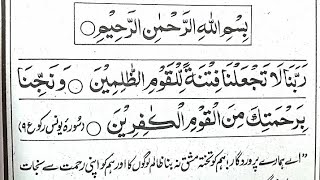 بِسْمِ اللهِ الرَّحْمٰنِ الرَّحِيْمِ ○
رَبَّنَا لَا تَجْعَلْنَا فِتْنَةً لِّلْقَوْمِ الظّٰلِمِيْنَ ○ وَنَجِّنَا
بِرَحْمَتِكَ مِنَ الْقَوْمِ الْكٰفِرِيْنَ ○ (سُورۂ یونس رکوع ۹)
”اے ہمارے پروردگار! ہم کو تختۂ مشق نہ بنا ظالم لوگوں کا اور ہم کو اپنی رحمت سے نجات